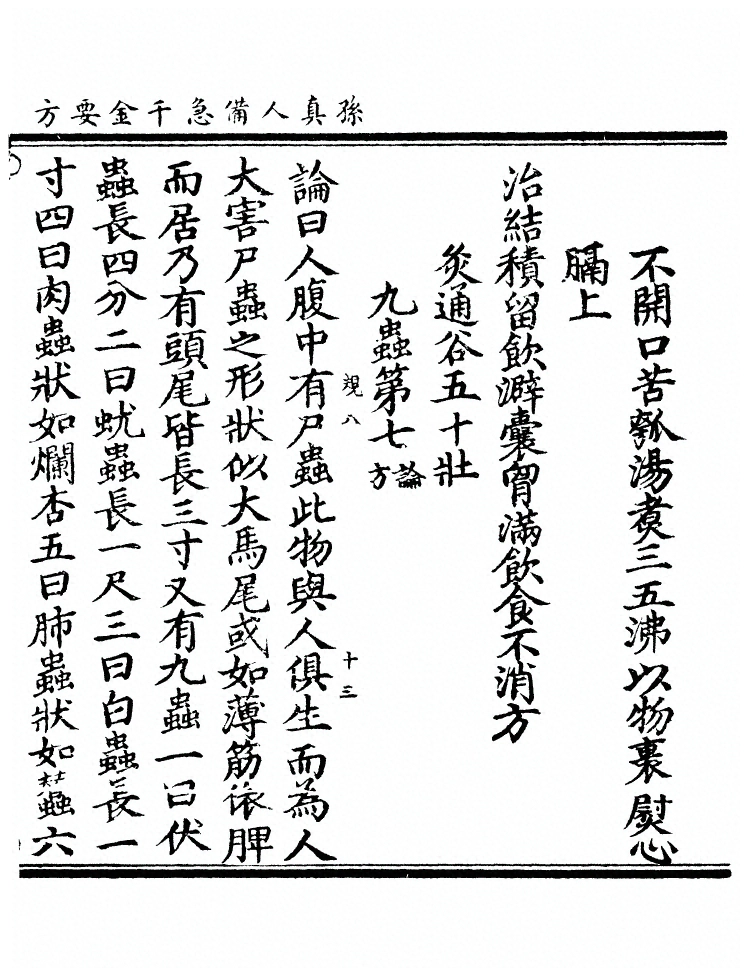 孫真人備急千金要方
不開口苦瓠湯煑三五沸以物裹熨心
膈上
治結積留飲澼囊胷滿飲食不消方
灸通谷五十壯
九蟲第七論方
競八
十三
論曰人腹中有尸蟲此物與人俱生而為人
大害尸蟲之形狀似大馬尾或如薄筋依脾
而居乃有頭尾皆長三寸又有九蟲一曰伏
蟲長四分二曰蚘蟲長一尺三曰白蟲長一
寸四曰肉蟲狀如爛杏五曰肺蟲狀如蠶六